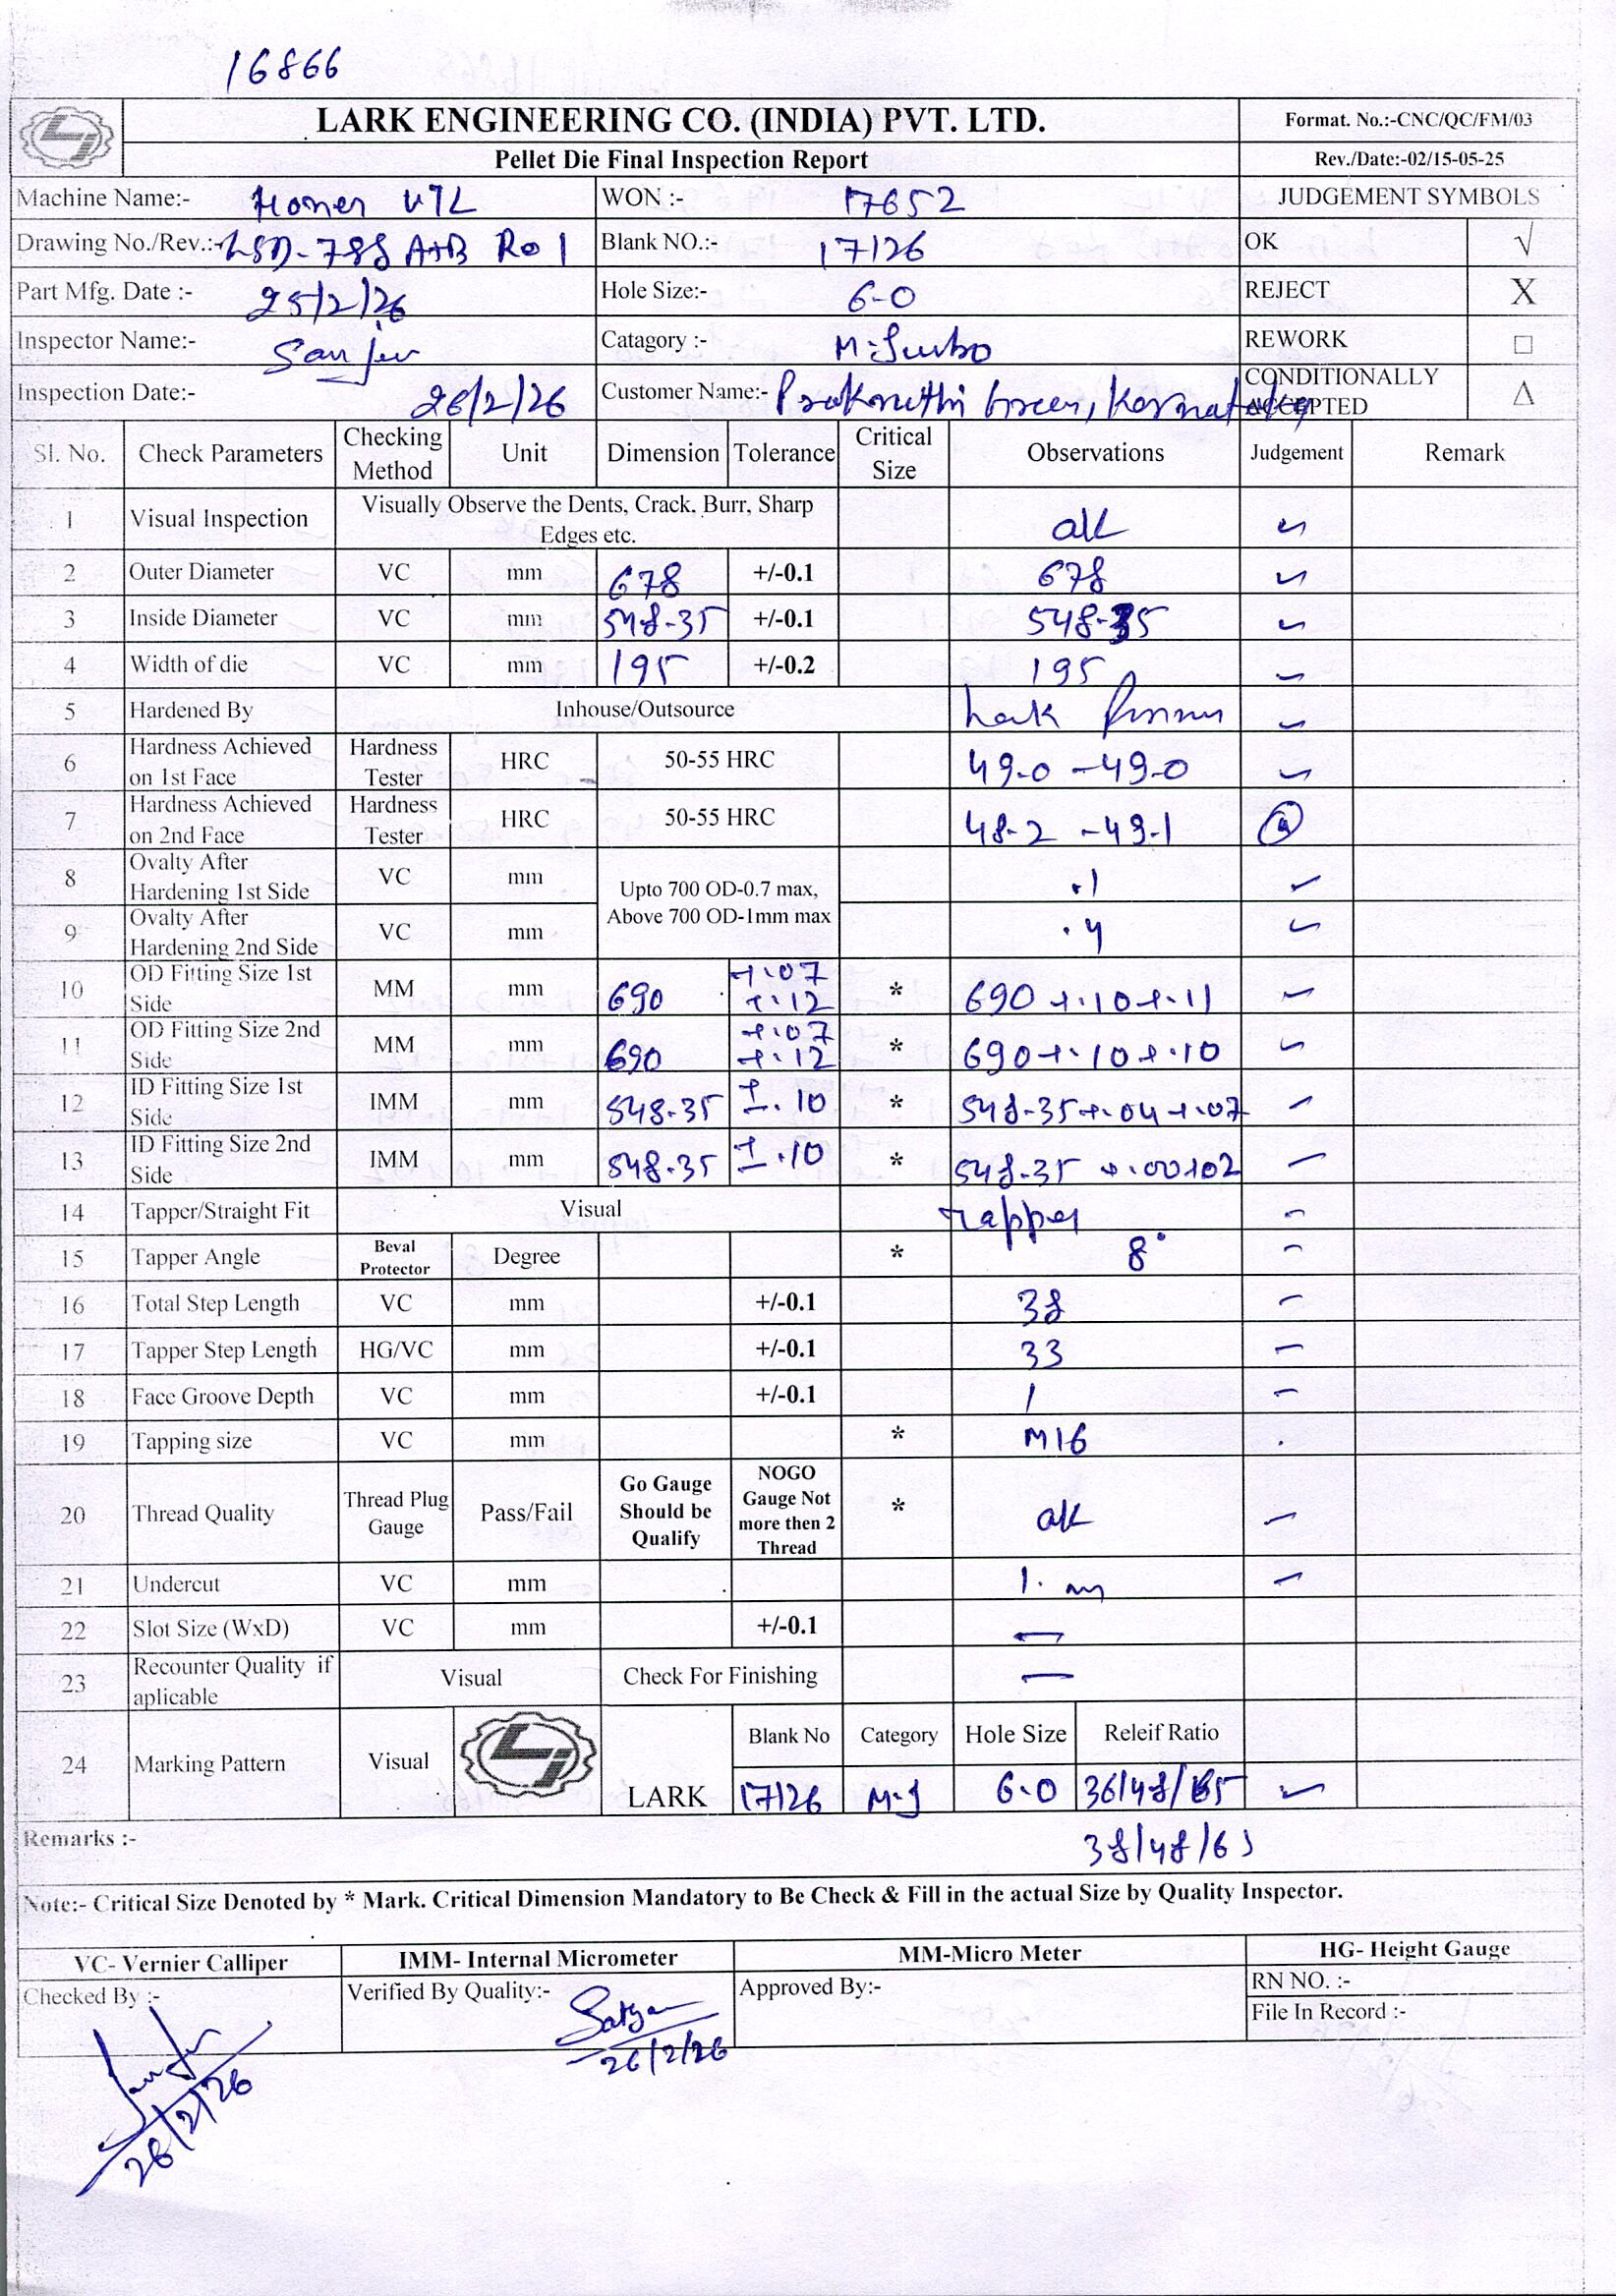 16866
LARK ENGINEERING CO. (INDIA) PVT. LTD.
Format. No.:-CNC/QC/FM/03
Pellet Die Final Inspection Report
Rev./Date:-02/15-05-25
Machine Name:- VTL WON :- 17652 JUDGEMENT SYMBOLS
Drawing No./Rev.:- LSD-788 A+B R01 Blank NO.:- 17126 OK √
Part Mfg. Date :- 25/2/26 Hole Size:- 6-0 REJECT X
Inspector Name:- Sanjeev Catagory :- REWORK □
Inspection Date:- 26/2/26 Customer Name:- Green, Karnataka CONDITIONALLY ACCEPTED Δ
Sl. No. Check Parameters Checking Method Unit Dimension Tolerance Critical Size Observations Judgement Remark
1 Visual Inspection Visually Observe the Dents, Crack, Burr, Sharp Edges etc. ok ✓
2 Outer Diameter VC mm 678 +/-0.1 678 ✓
3 Inside Diameter VC mm 548-35 +/-0.1 548-35 ✓
4 Width of die VC mm 195 +/-0.2 195 ✓
5 Hardened By Inhouse/Outsource Lark ✓
6 Hardness Achieved on 1st Face Hardness Tester HRC 50-55 HRC 49-0 -49-0 ✓
7 Hardness Achieved on 2nd Face Hardness Tester HRC 50-55 HRC 48-2 -49-1
8 Ovalty After Hardening 1st Side VC mm Upto 700 OD-0.7 max, Above 700 OD-1mm max .1 ✓
9 Ovalty After Hardening 2nd Side VC mm .4 ✓
10 OD Fitting Size 1st Side MM mm 690 +.07 +.12 * 690 +.10+.11 ✓
11 OD Fitting Size 2nd Side MM mm 690 +.07 +.12 * 690+.10+.10 ✓
12 ID Fitting Size 1st Side IMM mm 548-35 ±.10 * 548-35+.04+.07 ✓
13 ID Fitting Size 2nd Side IMM mm 548-35 ±.10 * 548-35 +.00+02 ✓
14 Tapper/Straight Fit Visual Tapper ✓
15 Tapper Angle Beval Protector Degree * 8° ✓
16 Total Step Length VC mm +/-0.1 38 ✓
17 Tapper Step Length HG/VC mm +/-0.1 33 ✓
18 Face Groove Depth VC mm +/-0.1 1 ✓
19 Tapping size VC mm * M16
20 Thread Quality Thread Plug Gauge Pass/Fail Go Gauge Should be Qualify NOGO Gauge Not more then 2 Thread * ok ✓
21 Undercut VC mm 1. ✓
22 Slot Size (WxD) VC mm +/-0.1 —
23 Recounter Quality if aplicable Visual Check For Finishing —
24 Marking Pattern Visual LARK Blank No Category Hole Size Releif Ratio
17126 M-S 6-0 36/48/65 ✓
Remarks :- 38/48/65
Note:- Critical Size Denoted by * Mark. Critical Dimension Mandatory to Be Check & Fill in the actual Size by Quality Inspector.
VC- Vernier Calliper IMM- Internal Micrometer MM-Micro Meter HG- Height Gauge
Checked By :- Verified By Quality:- Satyam Approved By:- RN NO. :-
File In Record :-
26/2/26
26/2/26